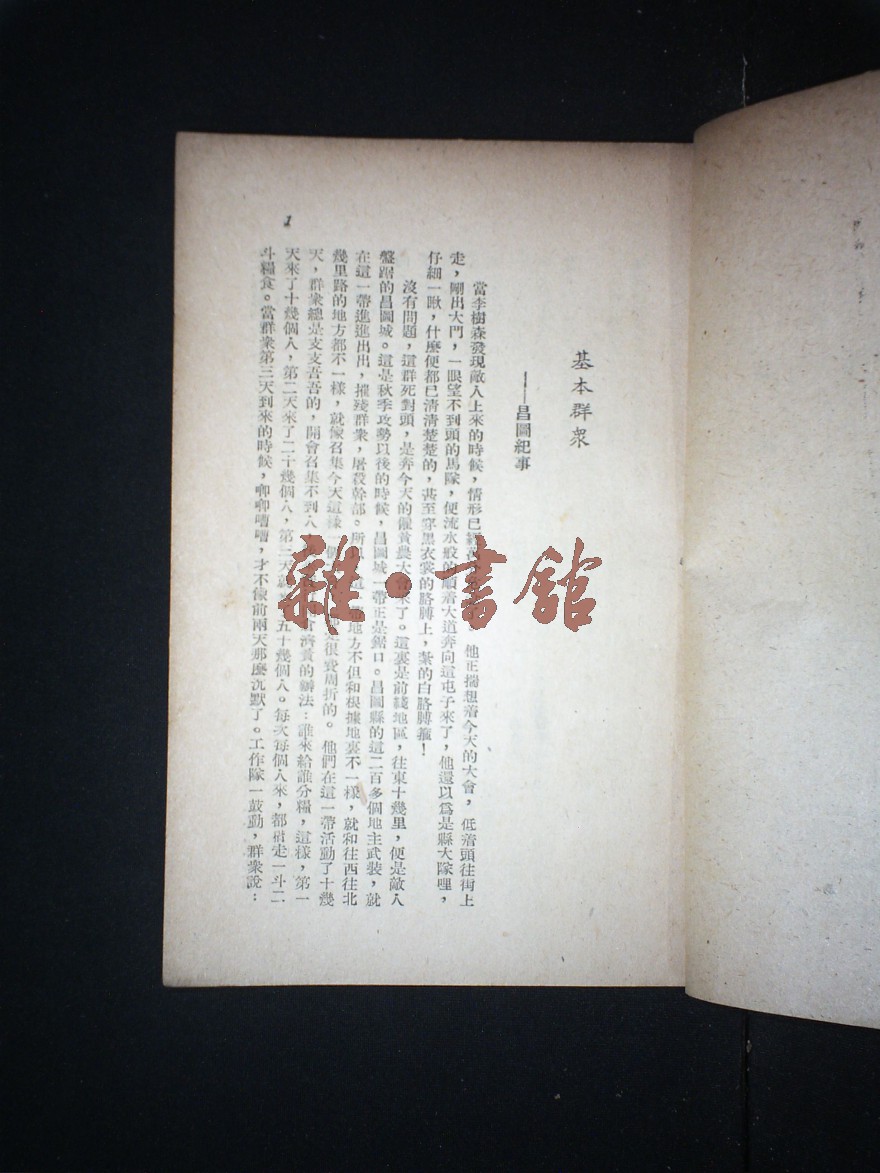 基本群衆
——昌圖紀事
當李樹森發現敵人上來的時候，情形已經 他正揣想着今天的大會，低着頭往街上
走，剛出大門，一眼望不到頭的馬隊，便流水般的順着大道奔向這屯子來了，他還以爲是縣大隊哩，
仔細一瞅，什麽便都已清清楚楚的，甚至穿黑衣裳的胳膊上，紮的白胳膊箍！
沒有問題，這群死對頭，是奔今天的僱貧農大會來了。這裏是前綫地區，往東十幾里，便是敵人
盤踞的昌圖城。這是秋季攻勢以後的時候，昌圖城一帶正是鋸口。昌圖縣的這二百多個地主武裝，就
在這一帶進進出出，摧殘群衆，屠殺幹部。所以 這 地方不但和根據地裏不一樣，就和往西往北
幾里路的地方都不一樣，就像召集今天這樣 是很費周折的。他們在這一帶活動了十幾
天，群衆總是支支吾吾的，開會召集不到人 濟貧的辦法：誰來給誰分糧，這樣，第一
天來了十幾個人，第二天來了二十幾個人，第三天 五十幾個人。每次每個人來，都背走一斗二
斗糧食。當群衆第三天到來的時候，唧唧嘈嘈，才不像前兩天那麽沉默了。工作隊一鼓動，群衆說：
1
雜·書館